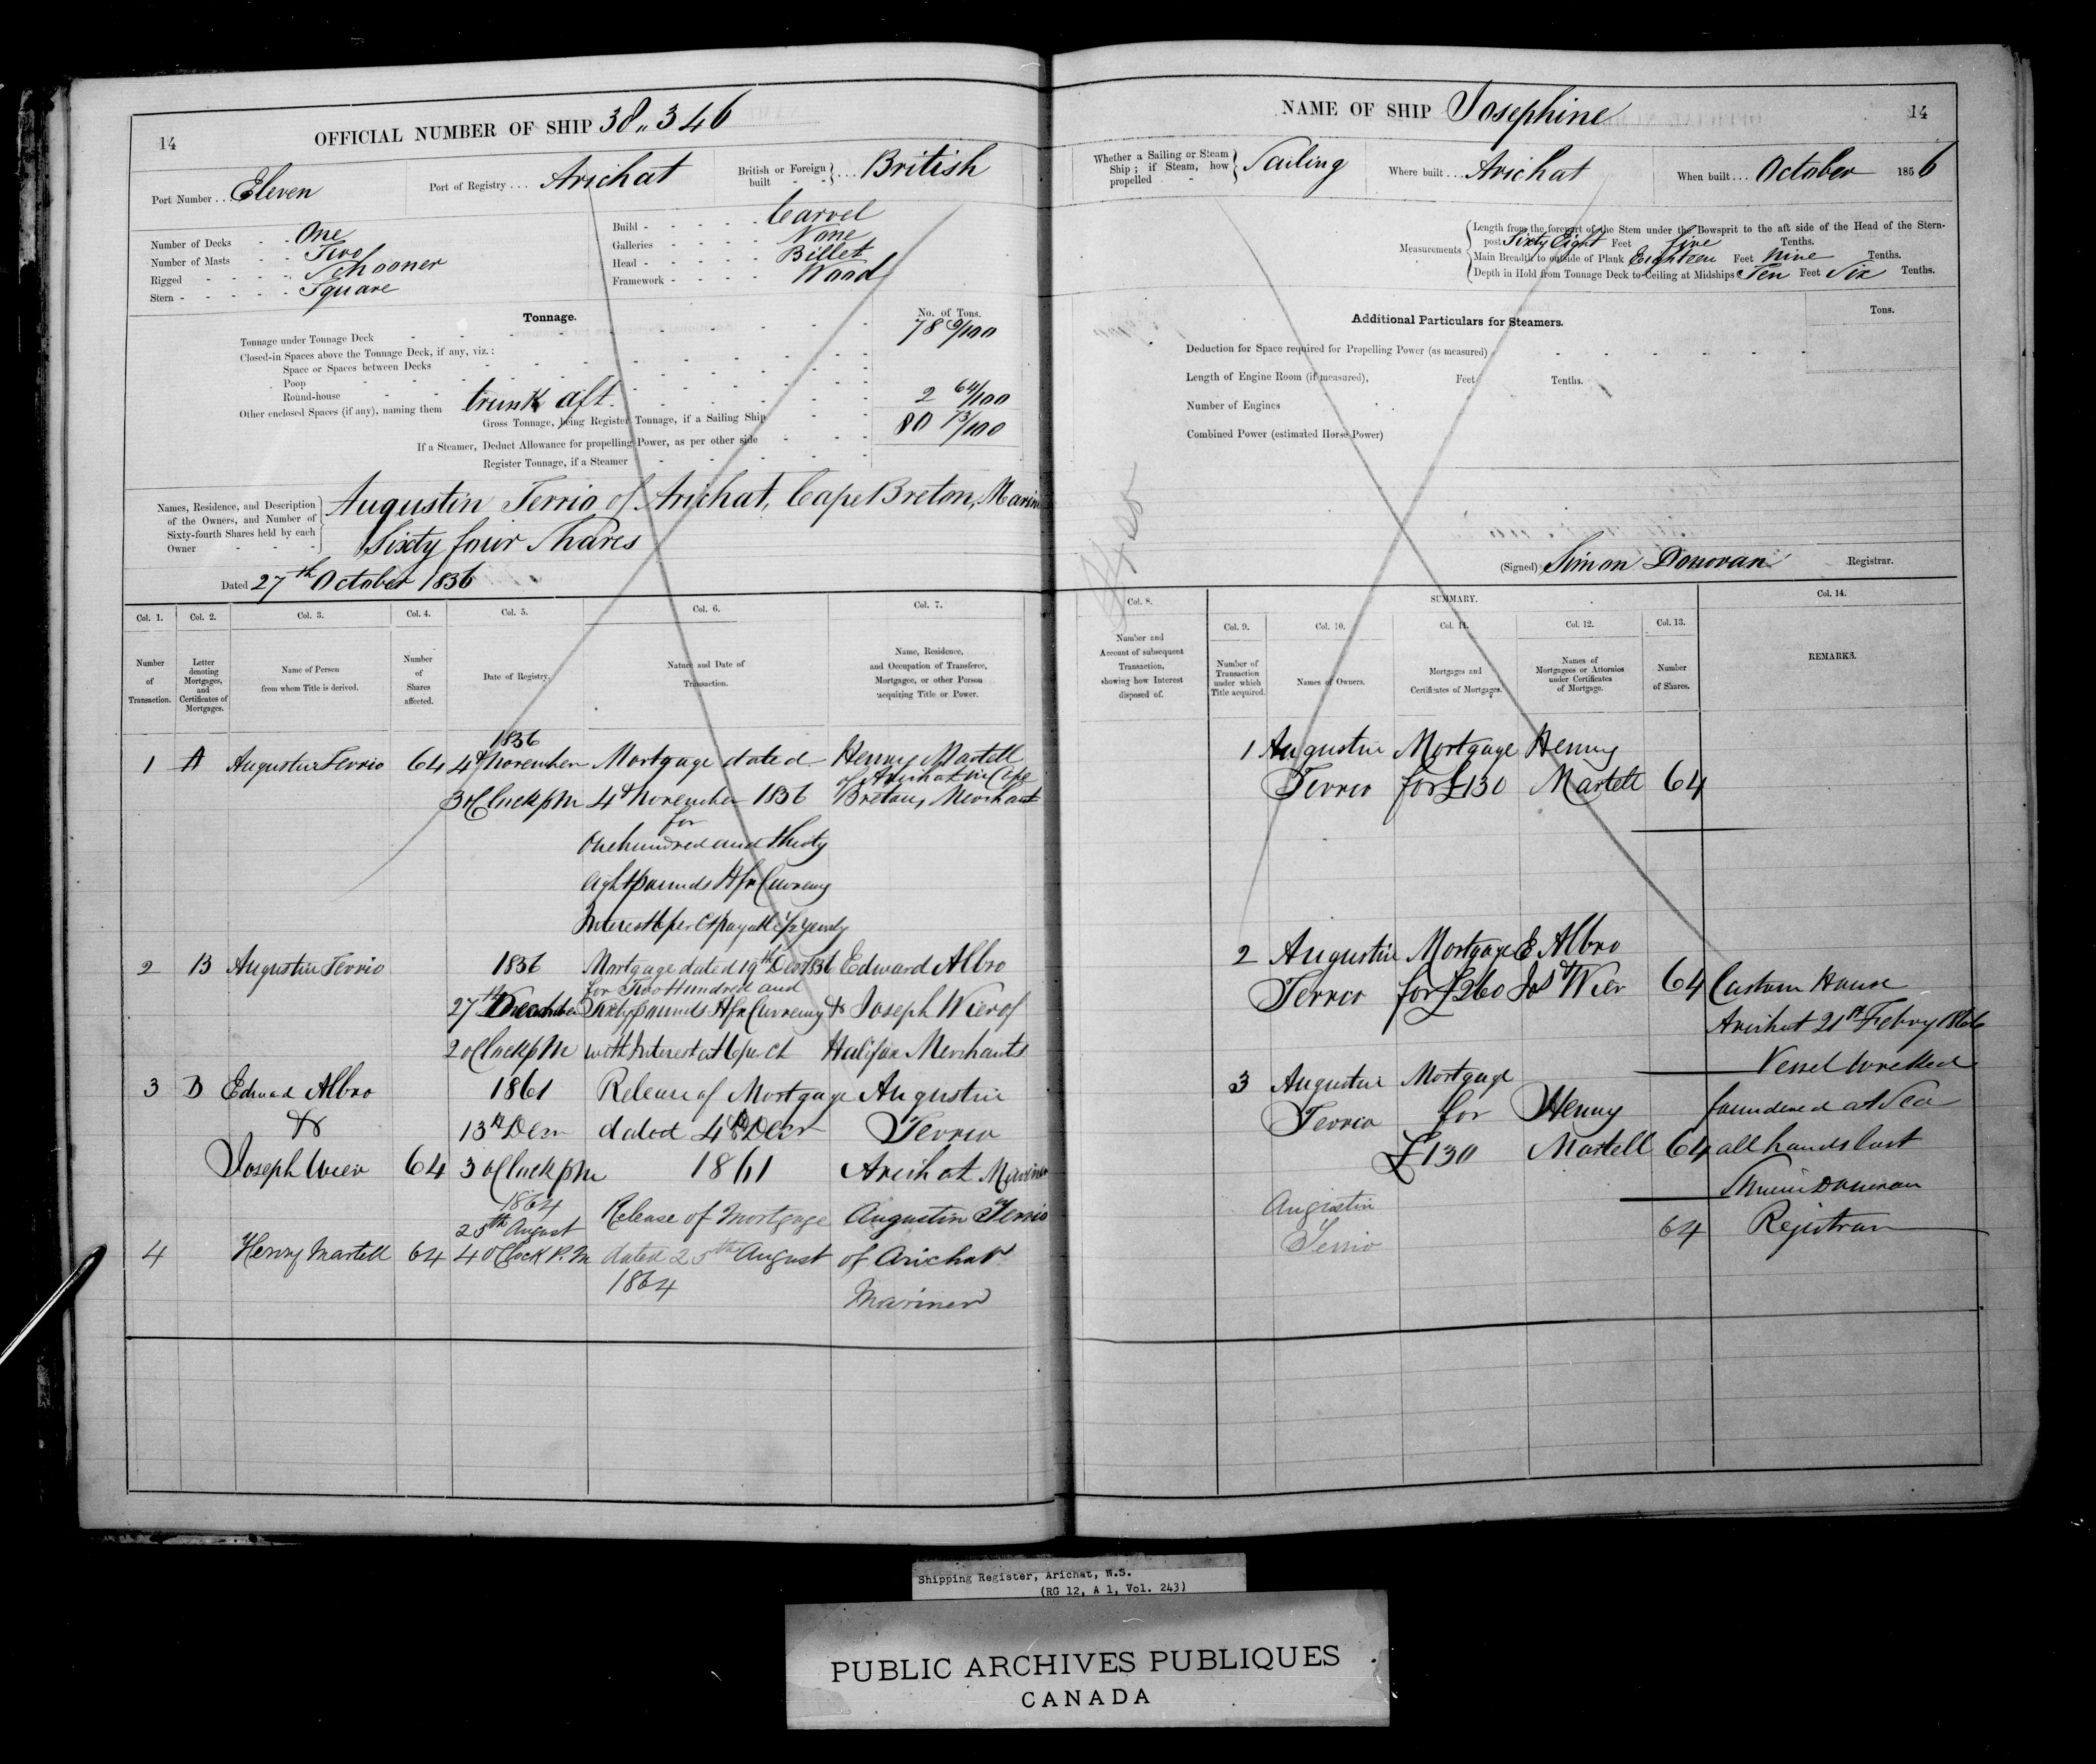 14
OFFICIAL NUMBER OF SHIP 38,,346
Port Number . . Eleven
Port of Registry . . . Arichat
British or Foreign built - - . . . British
Number of Decks - - One
Number of Masts - - Two
Rigged - - - - - Schooner
Stern - - - - - - Square
Build - - - - - - Carvel
Galleries - - - - - None
Head - - - - - - Billet
Framework - - - - Wood
Tonnage.
No. of Tons.
Tonnage under Tonnage Deck 78 9/100
Closed-in Spaces above the Tonnage Deck, if any, viz.:
Space or Spaces between Decks
Poop
Round-house
Other enclosed Spaces (if any), naming them trunk aft. 2 64/100
Gross Tonnage, being Register Tonnage, if a Sailing Ship 80 73/100
If a Steamer, Deduct Allowance for propelling Power, as per other side
Register Tonnage, if a Steamer
Names, Residence, and Description
of the Owners, and Number of
Sixty-fourth Shares held by each
Owner
Augustin Terrio of Arichat, Cape Breton, Marin
Sixty four Shares
Dated 27th October 1856
Col. 1.
Number
of
Transaction.
Col. 2.
Letter
denoting
Mortgages,
and
Certificates of
Mortgages.
Col. 3.
Name of Person
from whom Title is derived.
Col. 4.
Number
of
Shares
affected.
Col. 5.
Date of Registry.
Col. 6.
Nature and Date of
Transaction.
Col. 7.
Name, Residence,
and Occupation of Transferee,
Mortgagee, or other Person
acquiring Title or Power.
1 A Augustin Terrio 64
1856
4th November
3 oClock pm
Mortgage dated
4th November 1856
for
One hundred and thirty
eight pounds Hfx Currency
Interest 6 per ct payable 1/2 yearly
Henry Martell
of Arichat in Cape
Breton, Merchant
2 B Augustin Terrio
1856
27th December
2 oClock pm
Mortgage dated 19th Decr 1856
for Two Hundred and
Sixty pounds Hfx Currency
with Interest at 6 per ct
Edward Albro
& Joseph Wier of
Halifax Merchants
3 B Edward Albro
&
Joseph Wier 64
1861
13th Decr
3 oClock pm
Release of Mortgage
dated 4th Decr
1861
Augustin
Terrio
Arichat Mariner
4 Henry Martell 64
1864
25th August
4 oClock P.M
Release of Mortgage
dated 25th August
1864
Augustin Terrio
of Arichat
Mariner
NAME OF SHIP Josephine
14
Whether a Sailing or Steam
Ship; if Steam, how
propelled - Sailing
Where built . . . Arichat
When built . . . October 1856
Measurements
Length from the forepart of the Stem under the Bowsprit to the aft side of the Head of the Stern-
post Sixty Eight Feet five Tenths.
Main Breadth to outside of Plank Eighteen Feet Nine Tenths.
Depth in Hold from Tonnage Deck to Ceiling at Midships Ten Feet Six Tenths.
Additional Particulars for Steamers.
Tons.
Deduction for Space required for Propelling Power (as measured)
Length of Engine Room (if measured), Feet Tenths.
Number of Engines
Combined Power (estimated Horse Power)
(Signed) Simon Donovan Registrar.
Col. 8.
Number and
Account of subsequent
Transaction,
showing how Interest
disposed of.
SUMMARY.
Col. 9.
Number of
Transaction
under which
Title acquired.
Col. 10.
Names of Owners.
Col. 11.
Mortgages and
Certificates of Mortgages.
Col. 12.
Names of
Mortgagees or Attornies
under Certificates
of Mortgage.
Col. 13.
Number
of Shares.
Col. 14.
REMARKS.
1 Augustin Mortgage Henry
Terrio for £130 Martell 64
2 Augustin Mortgage E Albro
Terrio for £260 & Jos Wier 64
3 Augustin Mortgage
Terrio for Henry
£130 Martell 64
Augustin
Terrio 64
Custom House
Arichat 21st Febry 1866
Vessel wrecked
foundered at Sea
all hands lost
Simon Donovan
Registrar
Shipping Register, Arichat, N.S.
(RG 12, A 1, Vol. 243)
PUBLIC ARCHIVES PUBLIQUES
CANADA